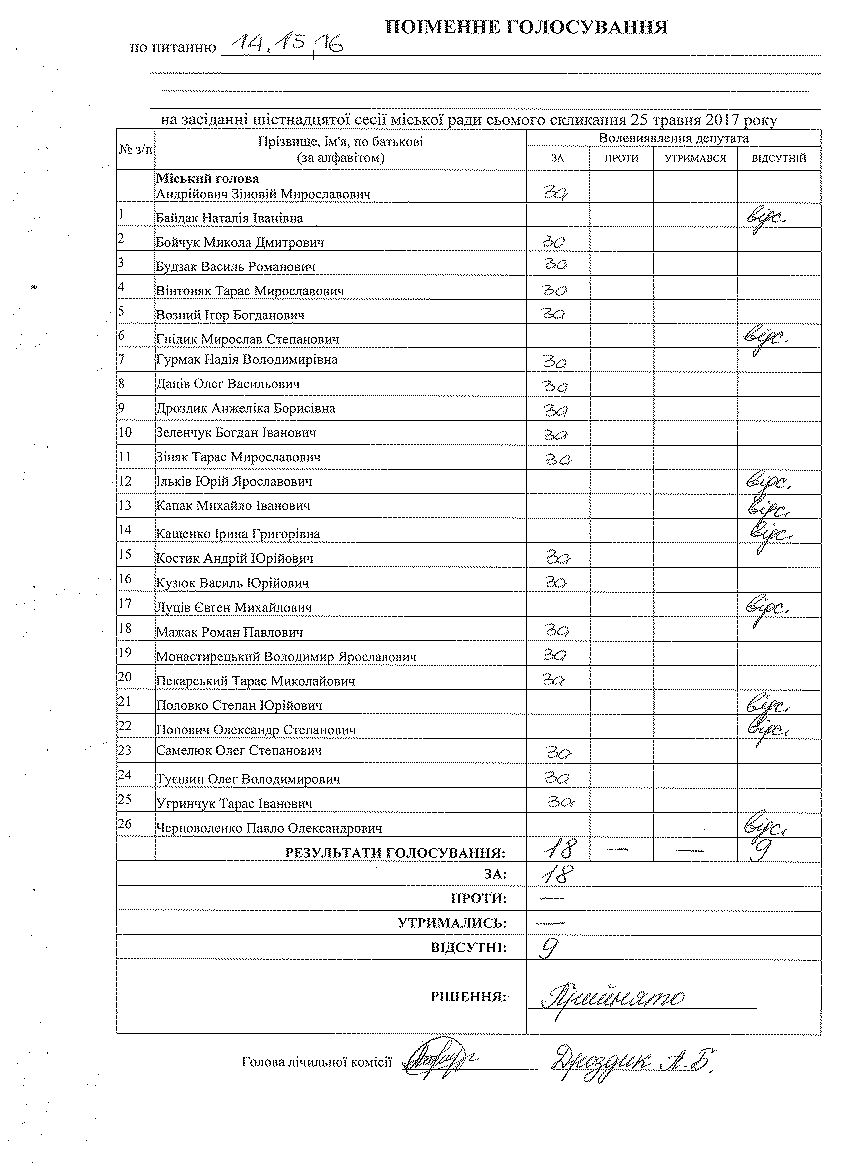 ПОІМЕННЕ ГОЛОСУВАННЯ
по питанню 14, 15, 16
на засіданні шістнадцятої сесії міської ради сьомого скликання 25 травня 2017 року
№ з/п Прізвище, ім'я, по батькові (за алфавітом) Волевиявлення депутата
ЗА ПРОТИ УТРИМАВСЯ ВІДСУТНІЙ
Міський голова
Андрійович Зіновій Мирославович за
1 Байдак Наталія Іванівна відс.
2 Бойчук Микола Дмитрович за
3 Будзак Василь Романович за
4 Вінтоняк Тарас Мирославович за
5 Возний Ігор Богданович за
6 Гнідик Мирослав Степанович відс.
7 Гурмак Надія Володимирівна за
8 Даців Олег Васильович за
9 Дроздик Анжеліка Борисівна за
10 Зеленчук Богдан Іванович за
11 Зіняк Тарас Мирославович за
12 Ільків Юрій Ярославович відс.
13 Капак Михайло Іванович відс.
14 Кащенко Ірина Григорівна відс.
15 Костик Андрій Юрійович за
16 Кузюк Василь Юрійович за
17 Луців Євген Михайлович відс.
18 Мажак Роман Павлович за
19 Монастирецький Володимир Ярославович за
20 Пекарський Тарас Миколайович за
21 Половко Степан Юрійович відс.
22 Попович Олександр Степанович відс.
23 Самелюк Олег Степанович за
24 Туєшин Олег Володимирович за
25 Угринчук Тарас Іванович за
26 Черноволенко Павло Олександрович відс.
РЕЗУЛЬТАТИ ГОЛОСУВАННЯ: 18 — — 9
ЗА: 18
ПРОТИ: —
УТРИМАЛИСЬ: —
ВІДСУТНІ: 9
РІШЕННЯ: Прийнято
Голова лічильної комісії Дроздик А. Б.